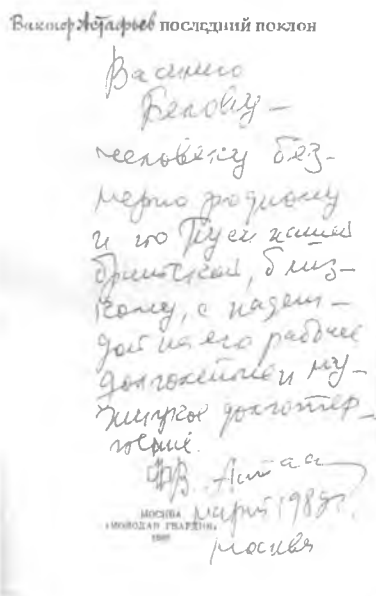 Виктор Астафьев последний поклон
Василию
Белову –
человеку без-
мерно родному
и по Руси нашей
братской, близ-
кому, с надеж-
дой на его рабочее
долголетие и му-
жицкое долготер-
пение.
В. Астаф
МОСКВА
«МОЛОДАЯ ГВАРДИЯ»
март 1989 г.
Москва